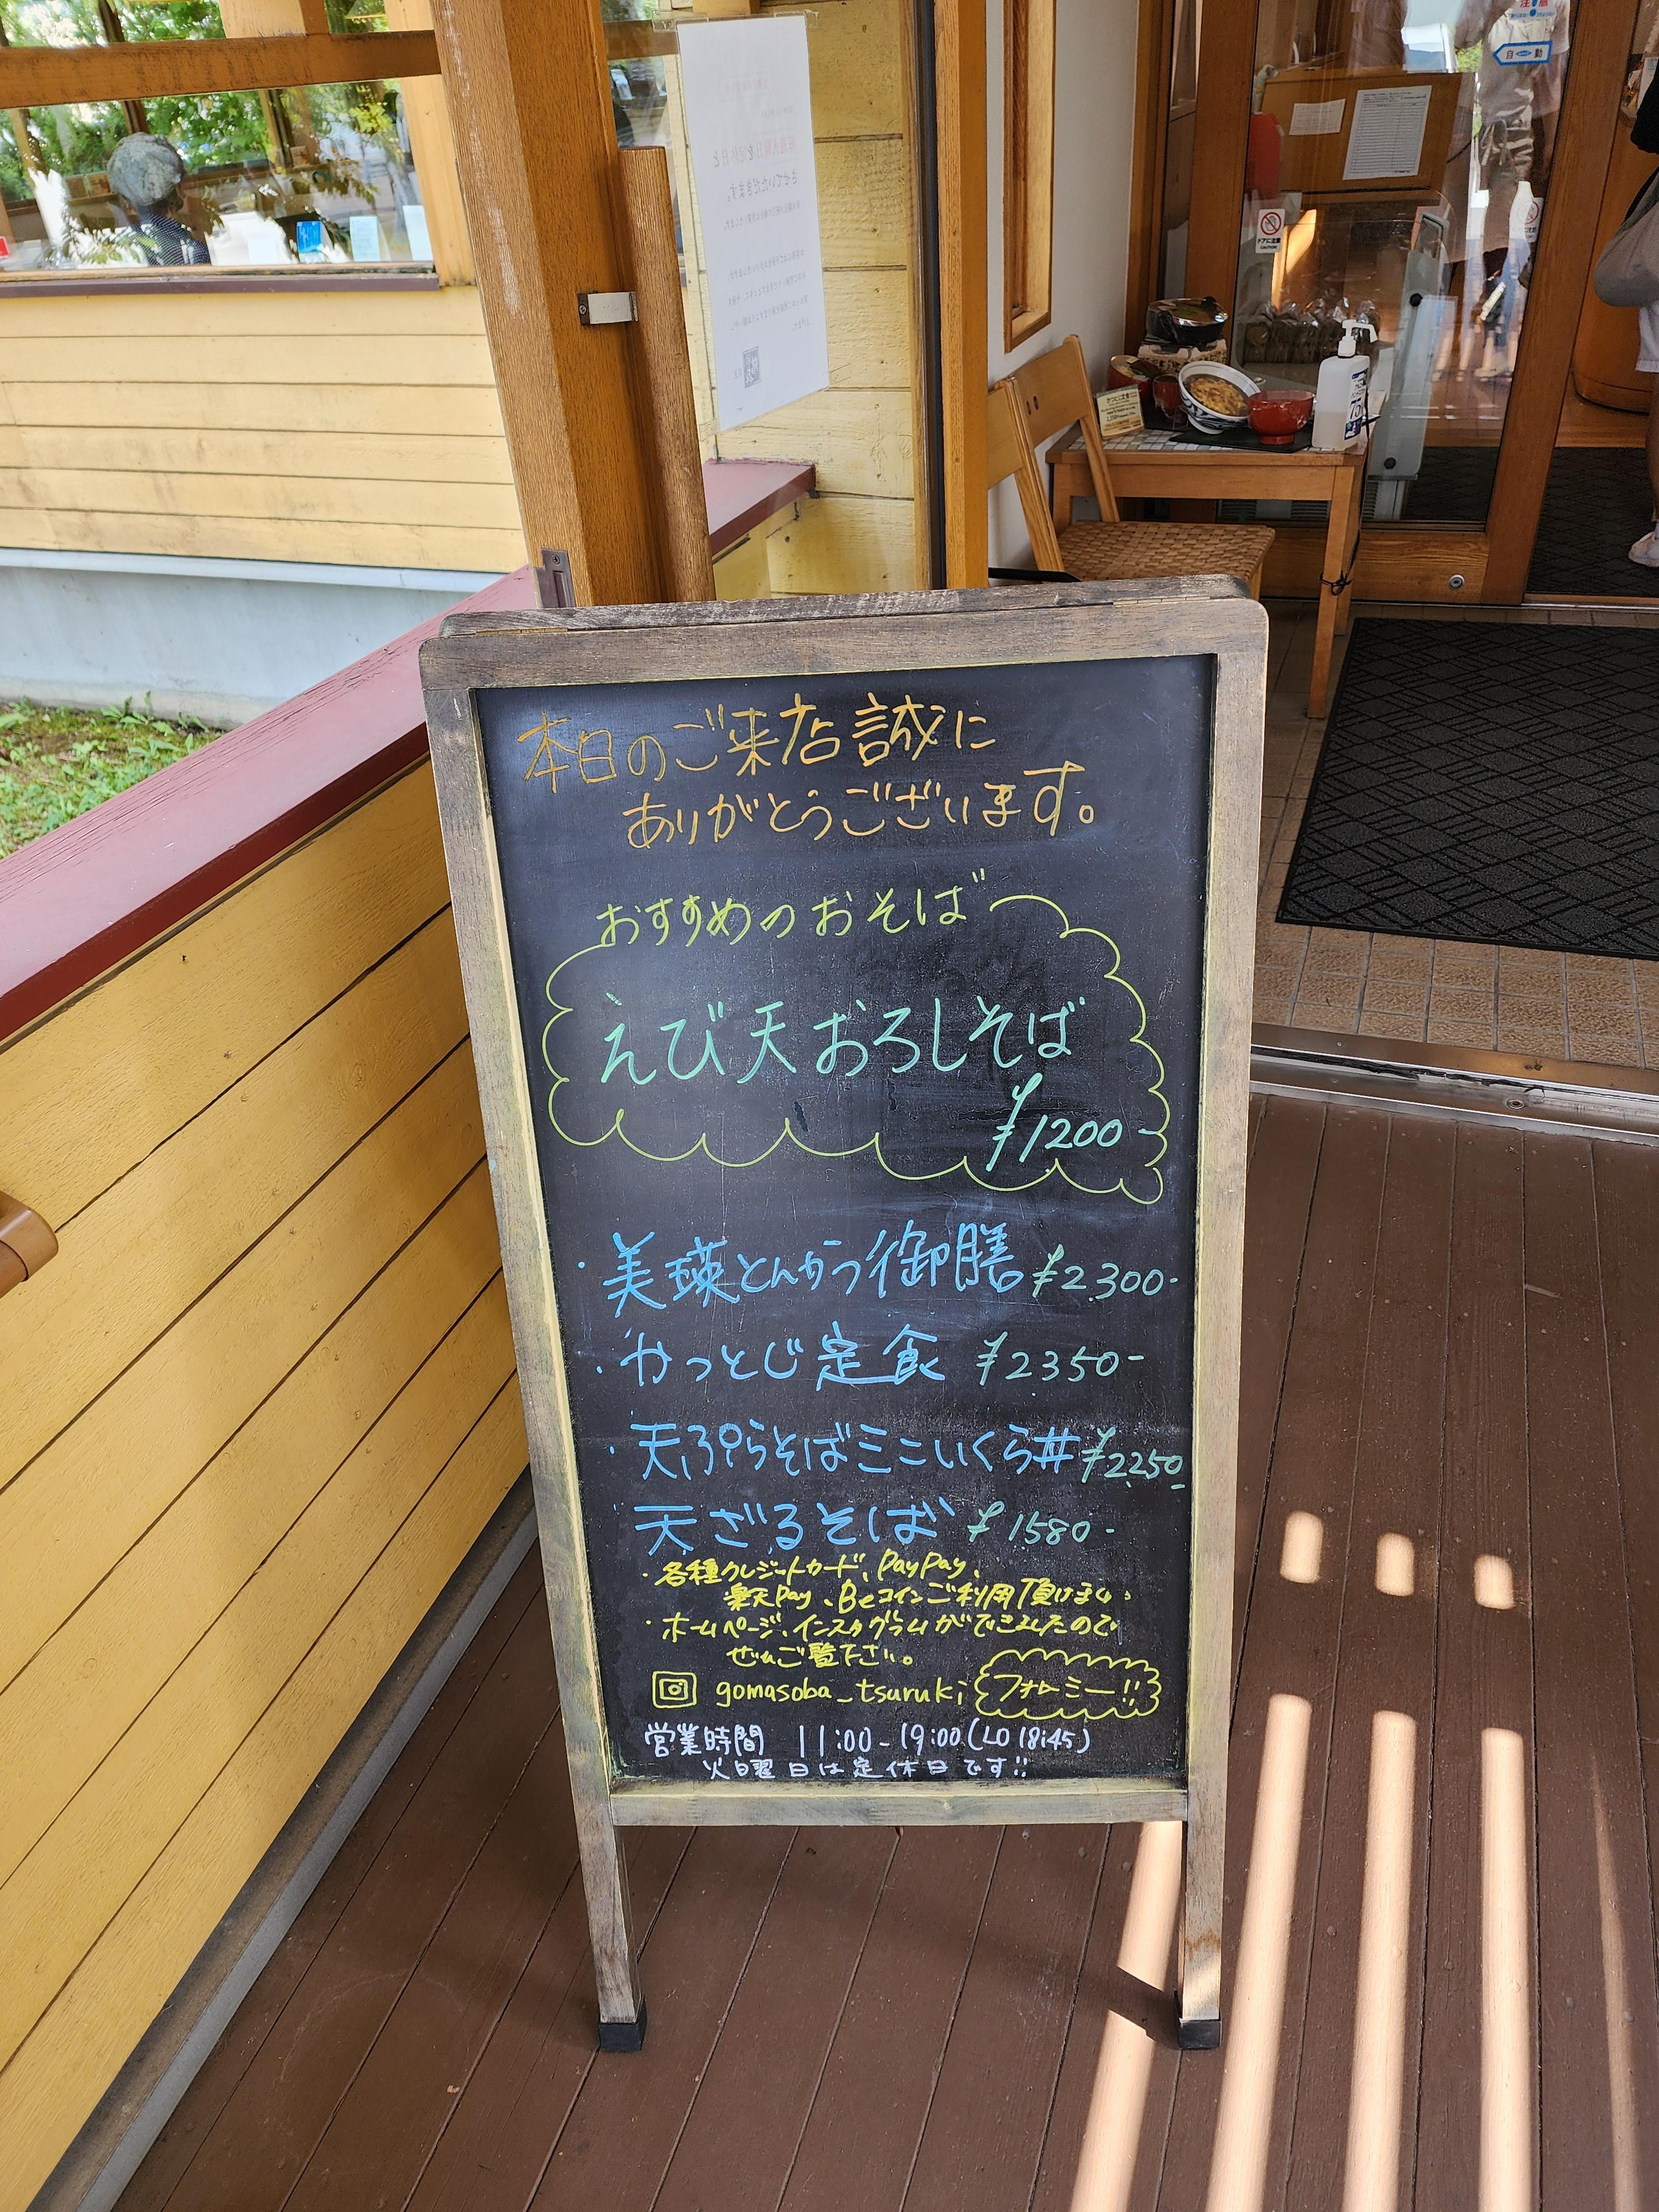 本日のご来店誠に
ありがとうございます。
おすすめのおそば
えび天おろしそば
¥1200-
・美瑛とんかつ御膳 ¥2300-
・かつとじ定食 ¥2350-
・天ぷらそばミニいくら丼 ¥2250-
天ざるそば ¥1580-
・各種クレジットカード、PayPay、
楽天Pay、Beコインご利用頂けます。
・ホームページ、インスタグラムができましたので
ぜひご覧下さい。
gomasoba_tsuruki フォローミー!!
営業時間 11:00-19:00(LO 18:45)
火曜日は定休日です!!
自動
ドアに注意
CAUTION